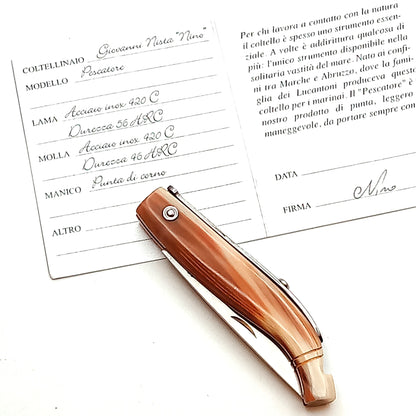 COLTELLINAIO Giovanni Nista "Nino"
MODELLO Pescatore
LAMA Acciaio inox 420 C
Durezza 56 HRC
MOLLA Acciaio inox 420 C
Durezza 46 HRC
MANICO Punta di corno
ALTRO
Per chi lavora a contatto con la natura
il coltello è spesso uno strumento essen-
ziale. A volte è addirittura qualcosa di
più: l'unico strumento disponibile nella
solitaria vastità del mare. Nato ai confi-
ni tra Marche e Abruzzo, dove la fami-
glia dei Lucantoni produceva questo
coltello per i marinai. Il "Pescatore" è il
nostro prodotto di punta, leggero
maneggevole, da portare sempre con
DATA
FIRMA Nino